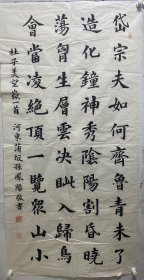 岱宗夫如何齊魯青未了
造化鐘神秀陰陽割昏曉
蕩胷生層雲決眦入歸鳥
會當凌絕頂一覽眾山小
杜子美望嶽一首 河東蒲坂孫鳳陽敬書